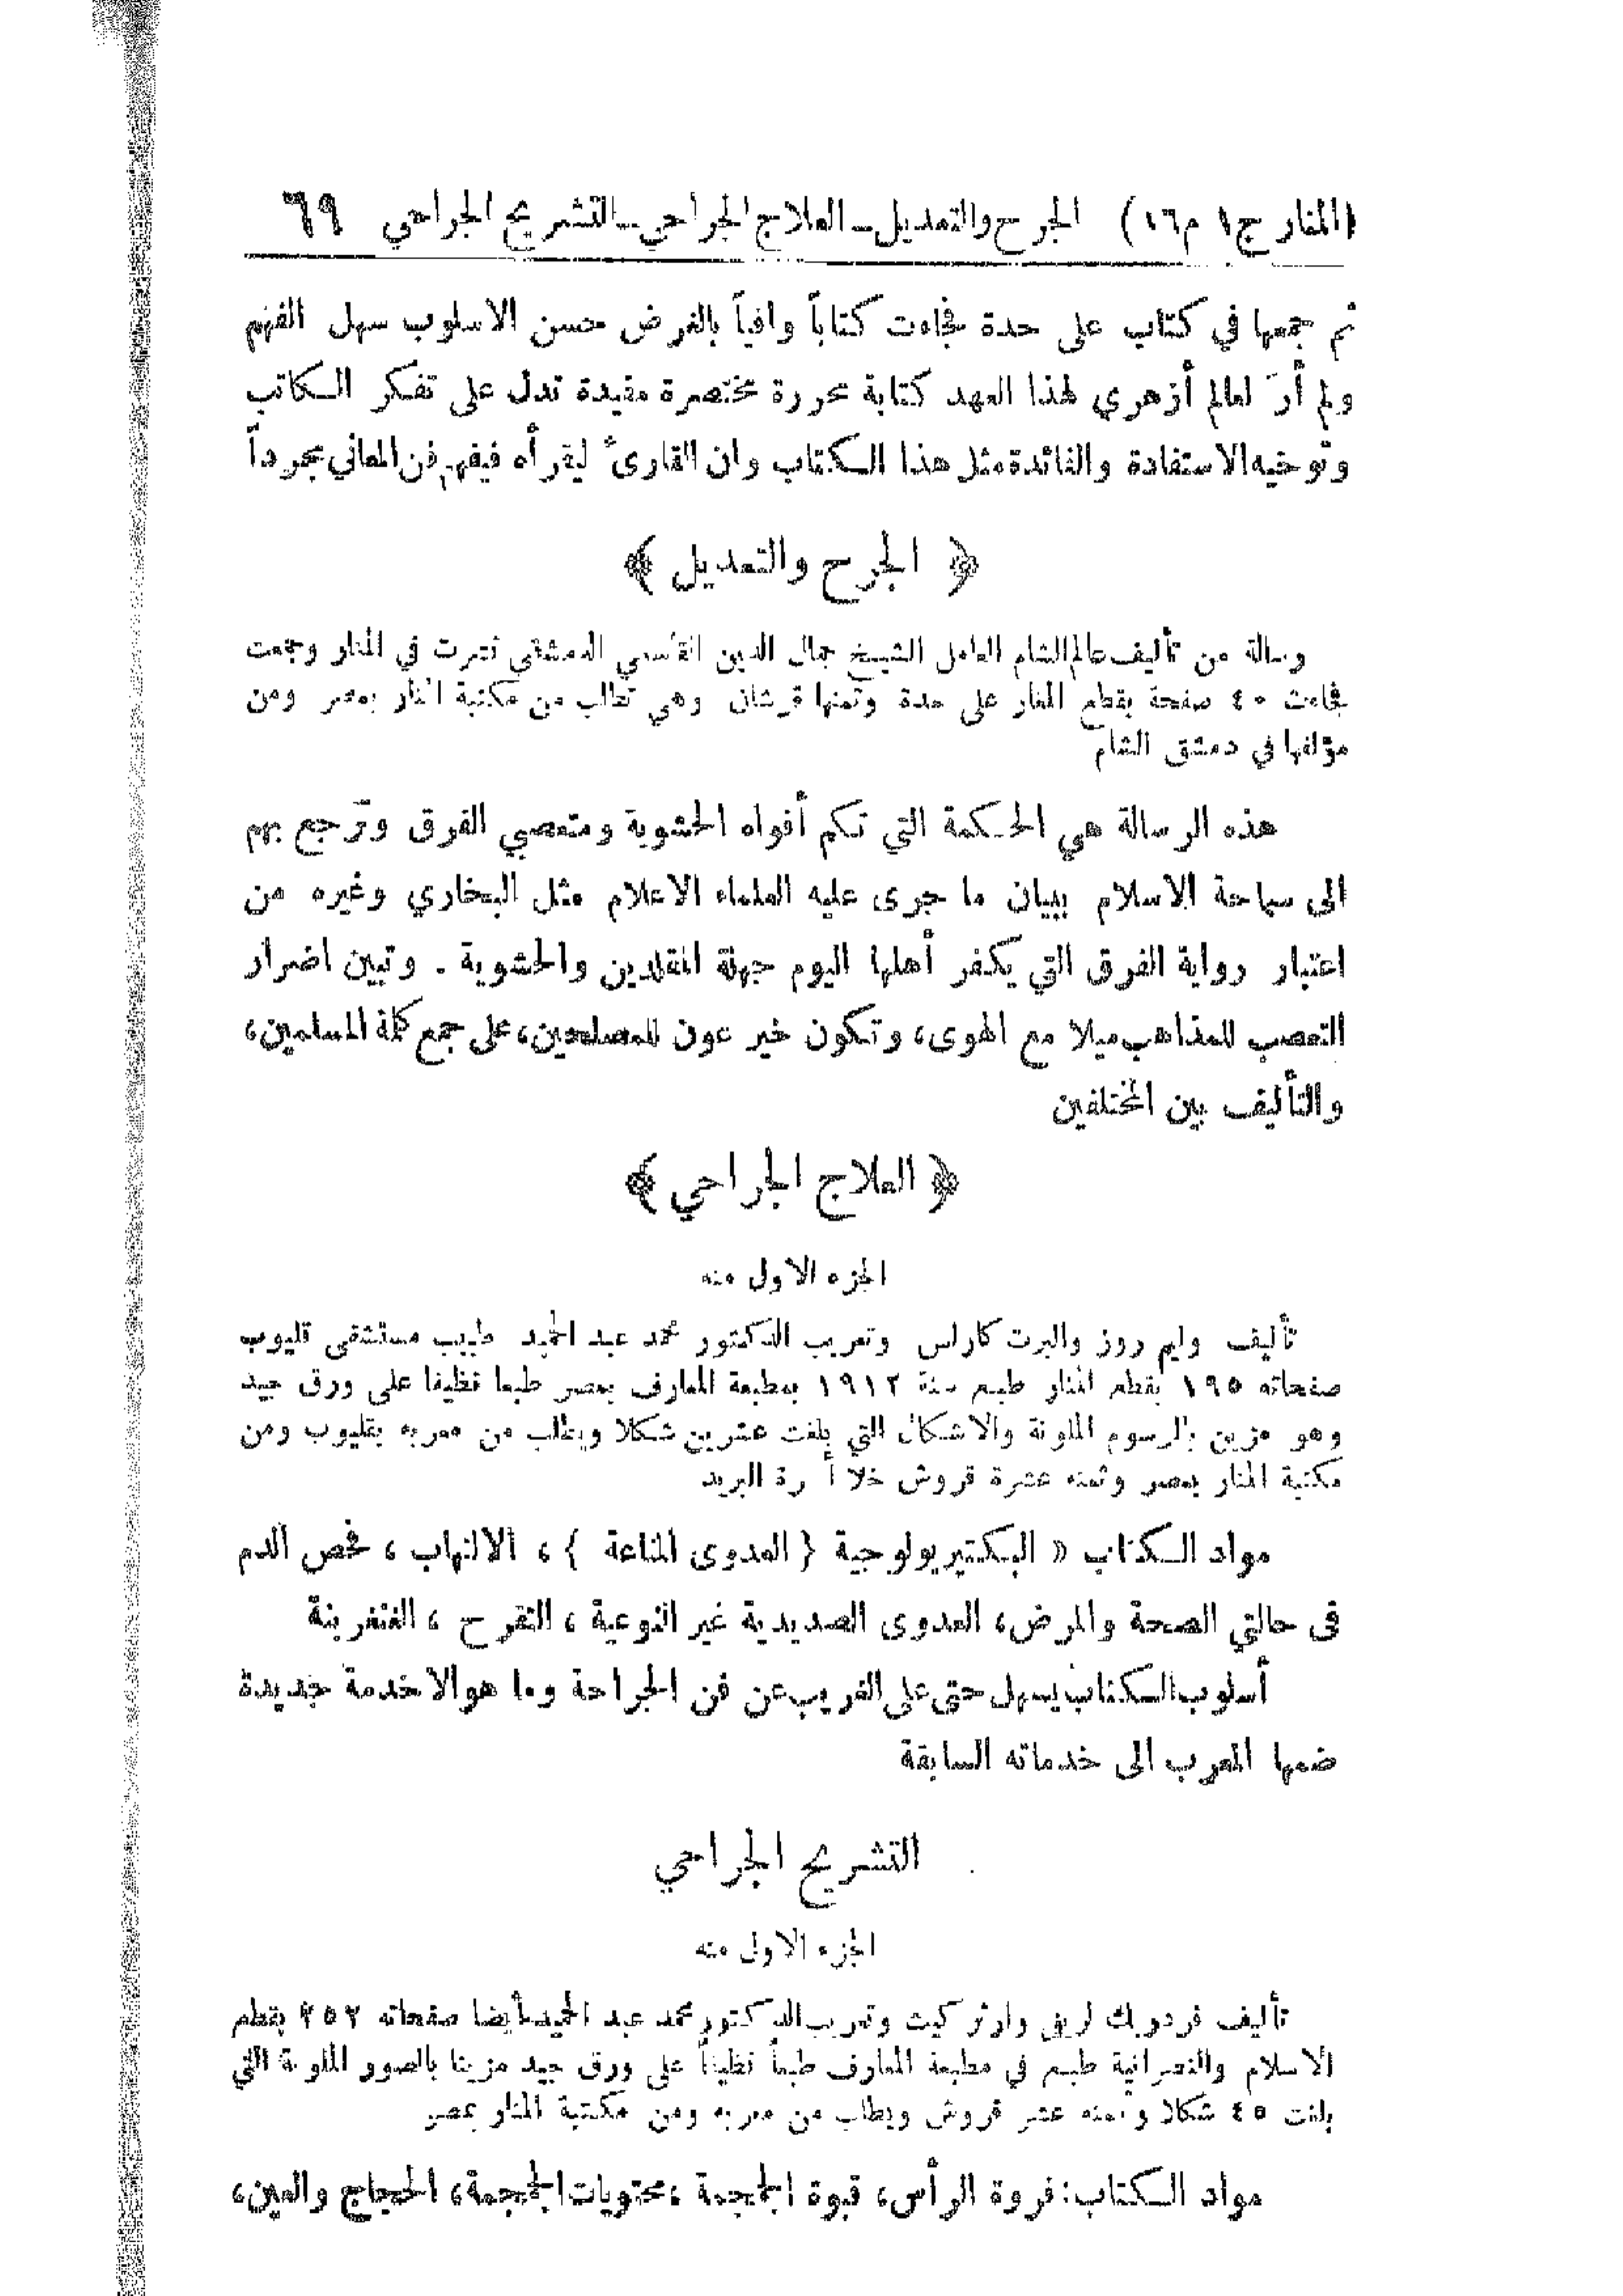 (المنار ج١ م١٦) الجرح والتعديل ـ العلاج الجراحي ـ التشريح الجراحي ٦٩
ثم جمعها في كتاب على حدة فجاءت كتاباً وافياً بالغرض حسن الاسلوب سهل الفهم
ولم أرَ لعالم أزهري لهذا العهد كتابة محررة مختصرة مفيدة تدل على تفكر الكاتب
وتوخيه الاستفادة والفائدة مثل هذا الكتاب وان القارئ ليقرأه فيفهم فن المعاني مجرداً
﴿ الجرح والتعديل ﴾
رسالة من تأليف عالم الشام العامل الشيخ جمال الدين القاسمي الدمشقي نشرت في المنار وجمعت
فجاءت ٤٠ صفحة بقطع المنار على حدة وثمنها قرشان وهي تطلب من مكتبة المنار بمصر ومن
مؤلفها في دمشق الشام
هذه الرسالة هي الحكمة التي تكم أفواه الحشوية ومتعصبي الفرق وترجع بهم
الى سماحة الاسلام ببيان ما جرى عليه العلماء الاعلام مثل البخاري وغيره من
اعتبار رواية الفرق التي يكفر أهلها اليوم جهلة المقلدين والحشوية . وتبين اضرار
التعصب للمذاهب ميلا مع الهوى، وتكون خير عون للمصلحين، على جمع كلمة المسلمين،
والتأليف بين المختلفين
﴿ العلاج الجراحي ﴾
الجزء الاول منه
تأليف وليم روز والبرت كارلس وتعريب الدكتور محمد عبد الحميد طبيب مستشفى قليوب
صفحاته ١٩٥ بقطع المنار طبع سنة ١٩١٢ بمطبعة المعارف بمصر طبعا نظيفا على ورق جيد
وهو مزين بالرسوم الملونة والاشكال التي بلغت عشرين شكلا ويطلب من معربه بقليوب ومن
مكتبة المنار بمصر وثمنه عشرة قروش خلا أجرة البريد
مواد الكتاب « البكتيريولوجية { العدوى المناعة } ، الالتهاب ، فحص الدم
فى حالتي الصحة والمرض، العدوى الصديدية غير النوعية ، التقرح ، الغنغرينة
أسلوب الكتاب يسهل حتى على الغريب عن فن الجراحة وما هو الا خدمة جديدة
ضمها المعرب الى خدماته السابقة
التشريح الجراحي
الجزء الاول منه
تأليف فردريك وارثر كيث وتعريب الدكتور محمد عبد الحميد أيضا صفحاته ٢٥٢ بقطع
الاسلام والنصرانية طبع في مطبعة المعارف طبعاً نظيفاً على ورق جيد مزينا بالصور الملونة التي
بلغت ٤٥ شكلا وثمنه عشر قروش ويطلب من معربه ومن مكتبة المنار بمصر
مواد الكتاب: فروة الرأس، قبوة الجمجمة ، محتويات الجمجمة، الحجاج والعين،